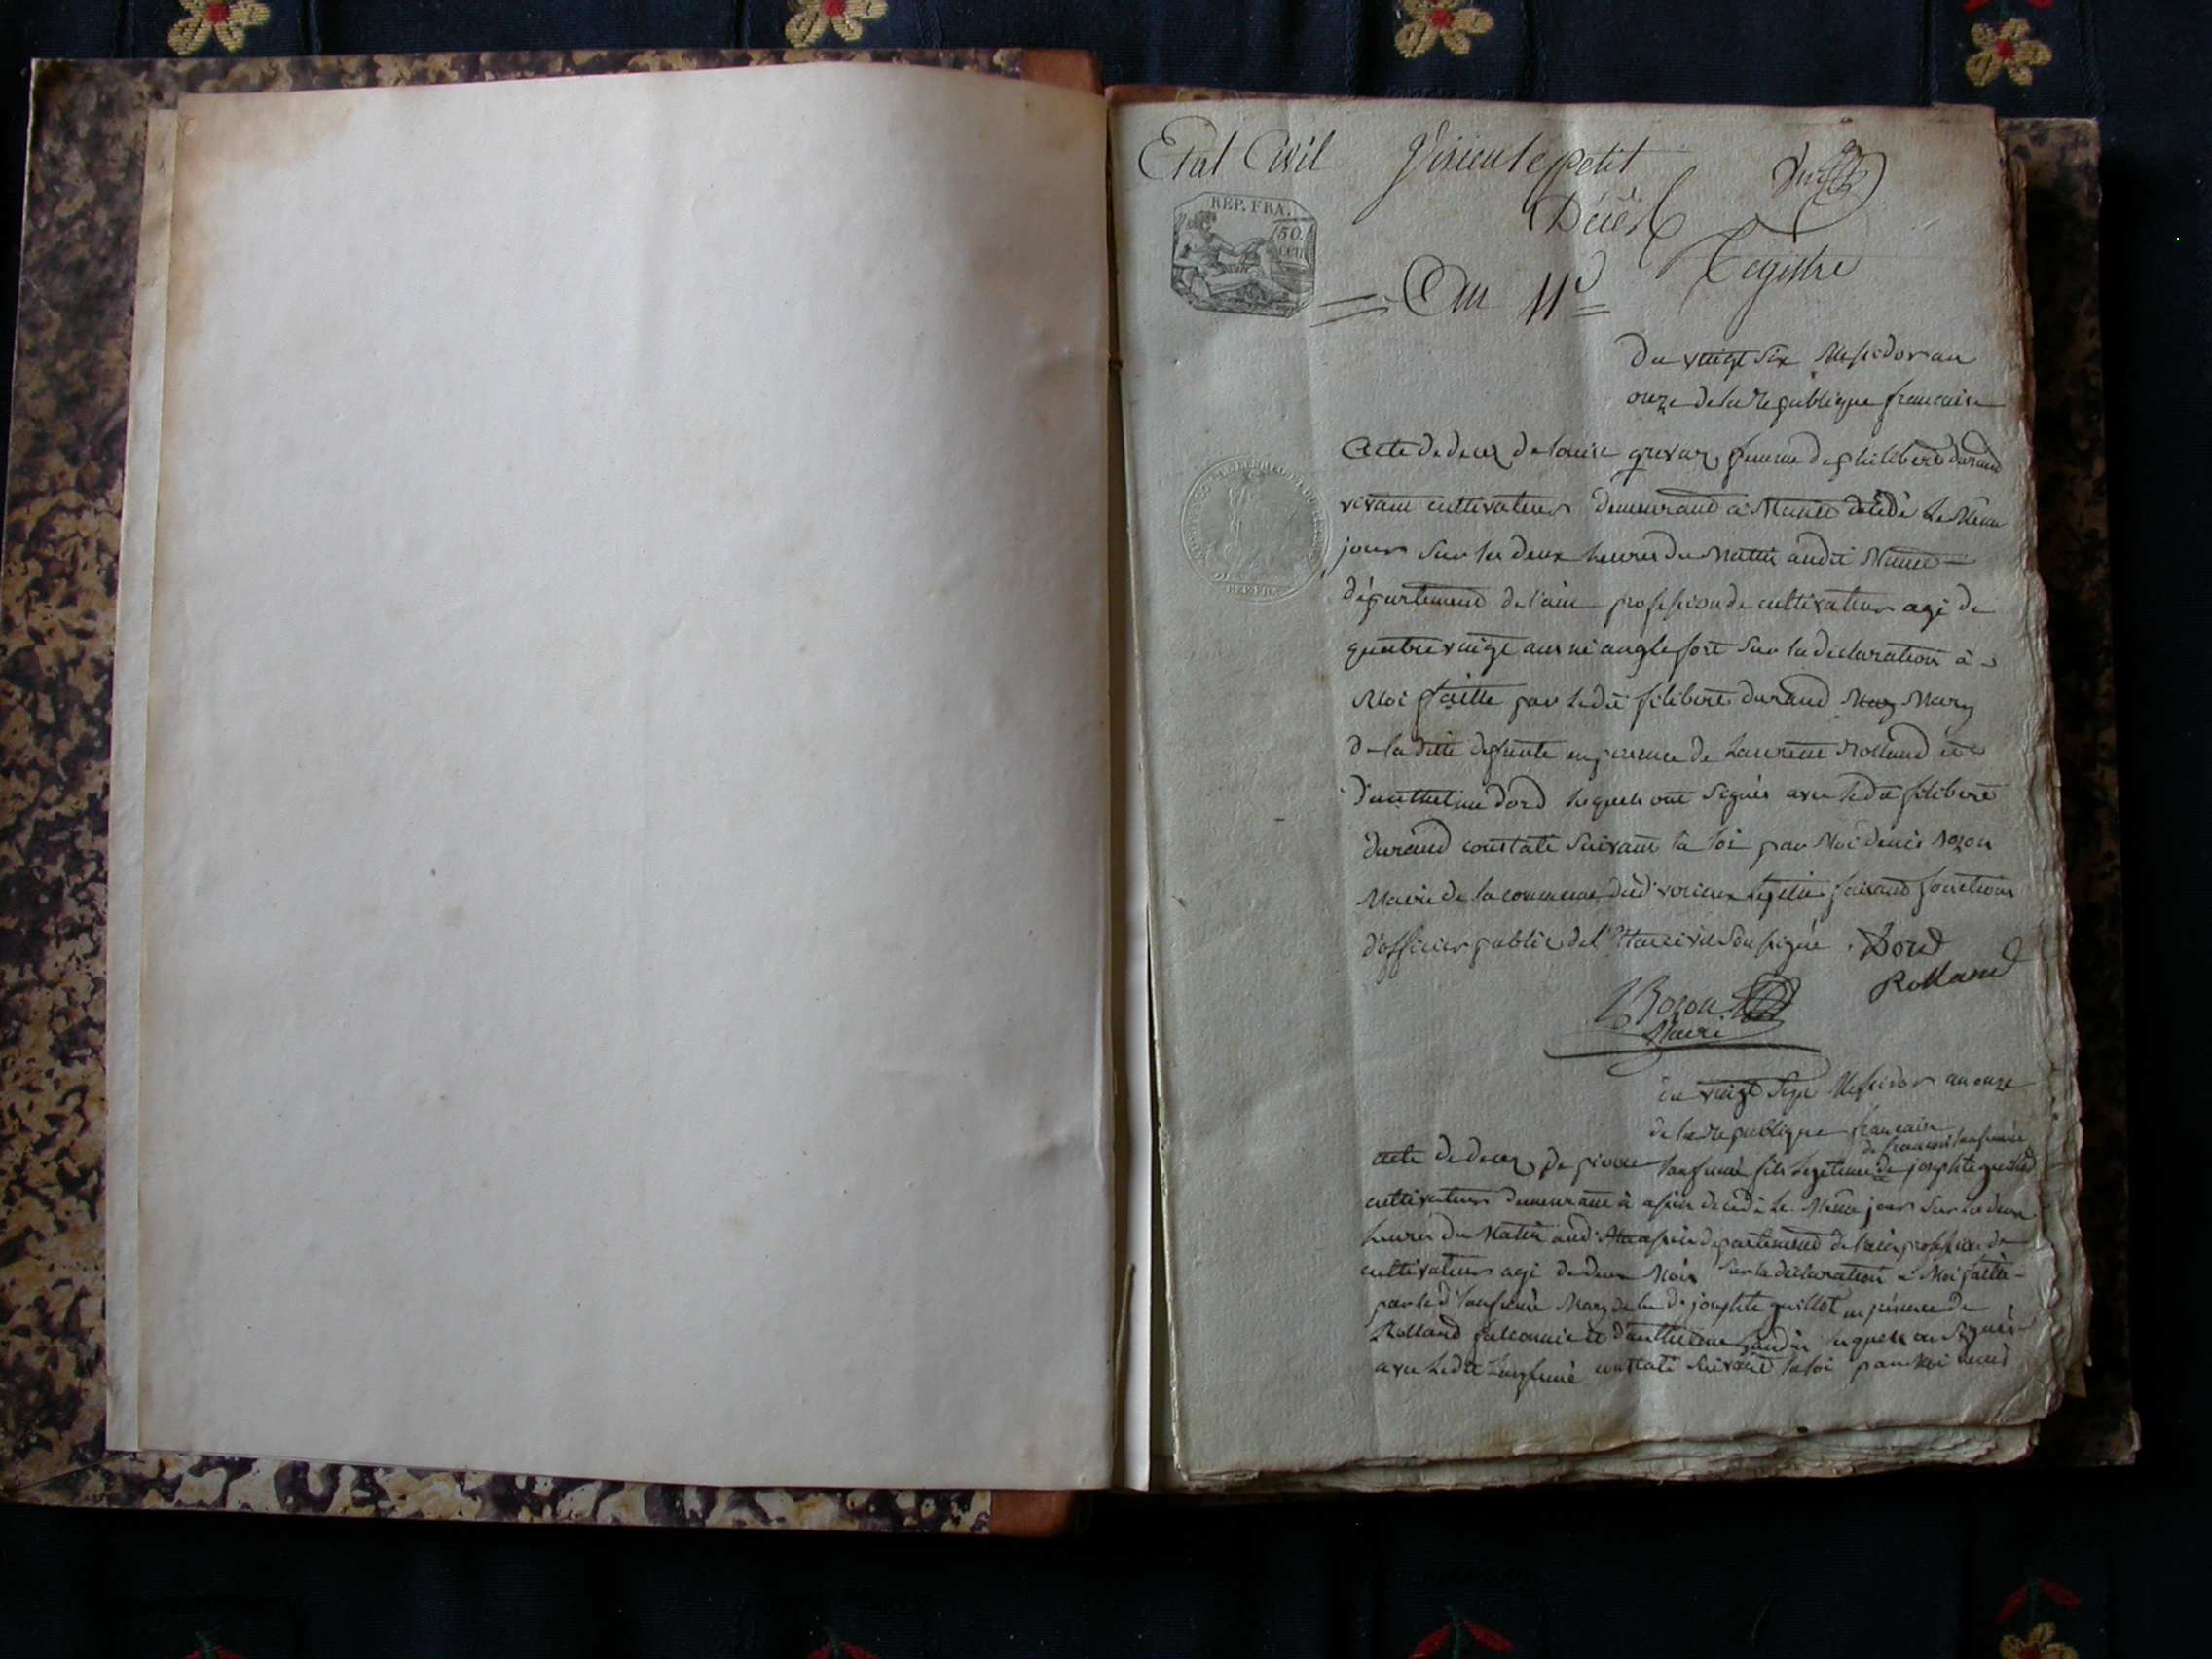 Etat Civil Virieu le petit
Décès
Registre
REP. FRA.
50.
cen
An 11e
Du vingt Six Messidor an
onze de la Republique francaise
Acte de deces de Louise femme de philibere durand
vivant cultivateur demeurand a décédé Le Meme
jour Sur les deux heures du Matin audit
département de l'ain profession de cultivateur agé de
quatre vingt ans né anglefort Sur la declaration à
Moi faitte par Ledit filibere durand Mary
de la ditte defunte en presence de Laurent Rolland et
d'anthelme dord lequels ont Signés avec Ledit filibere
durand constaté Suivant la loi par Moi denis Bozon
Maire de la commune de virieu le petit faisand fonctions
d'officier public de l'Etat civil Sousigné . Dord
Rolland
Bozon
Maire
du vingt Sept Messidor an onze
de la Republique francaise
acte de deces de pierre fils Legitime de josephte guillot
cultivateur demeurant à assin decedé Le Meme jour Sur les deux
heures du Matin audit assin departement de l'ain profession de
cultivateur agé de deux Mois Sur la declaration a Moi faitte
par led Mary de la dte josephte guillot en presence de
Rolland et d'anthelme lequels on Signés
avec Ledit constaté Suivant la loi par Moi